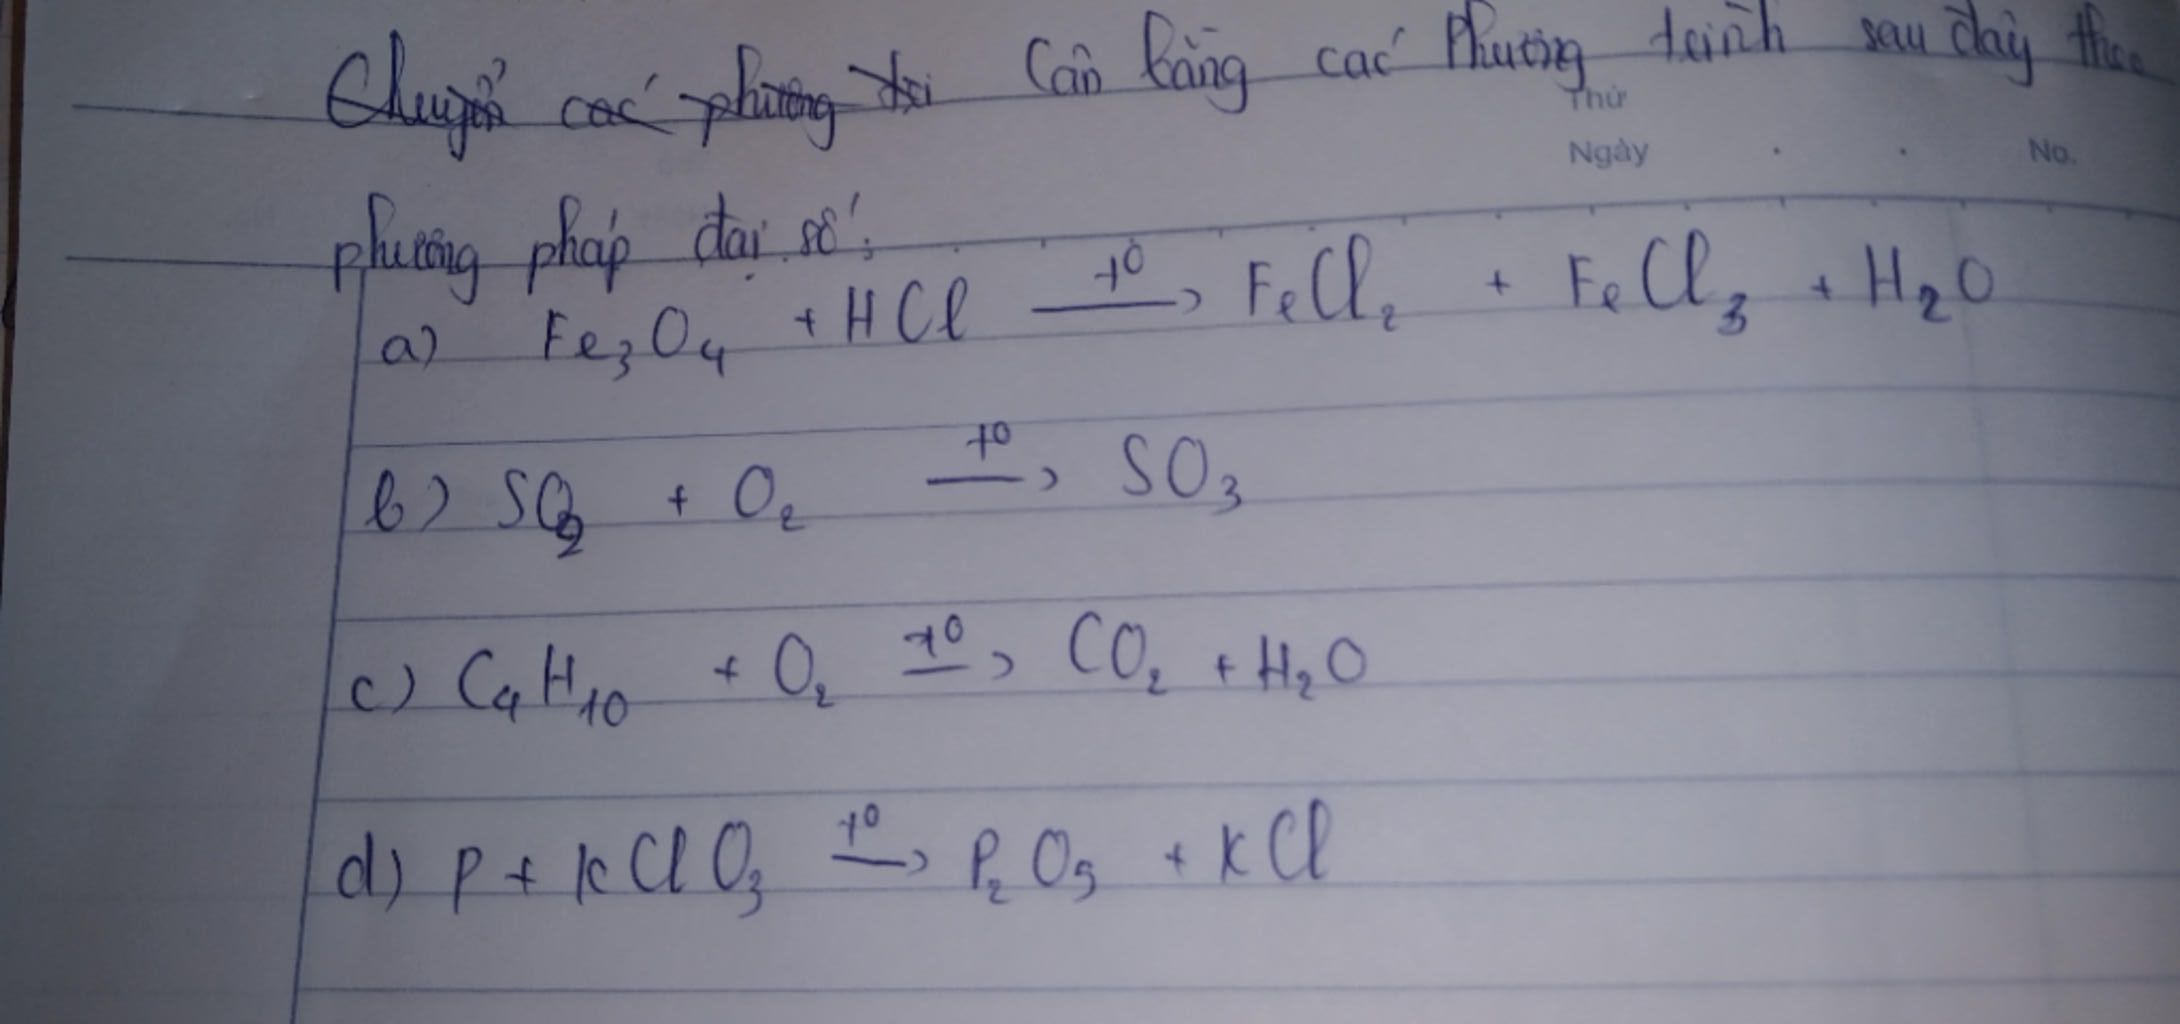 Chuyển các phương tri Cân bằng các Phương trình sau đây theo
Thứ
Ngày . . No.
phương pháp đại số:
a) Fe₃O₄ + HCl —t⁰→ FeCl₂ + FeCl₃ + H₂O
b) SO₂ + O₂ —t⁰→ SO₃
c) C₄H₁₀ + O₂ —t⁰→ CO₂ + H₂O
d) P + KClO₃ —t⁰→ P₂O₅ + KCl